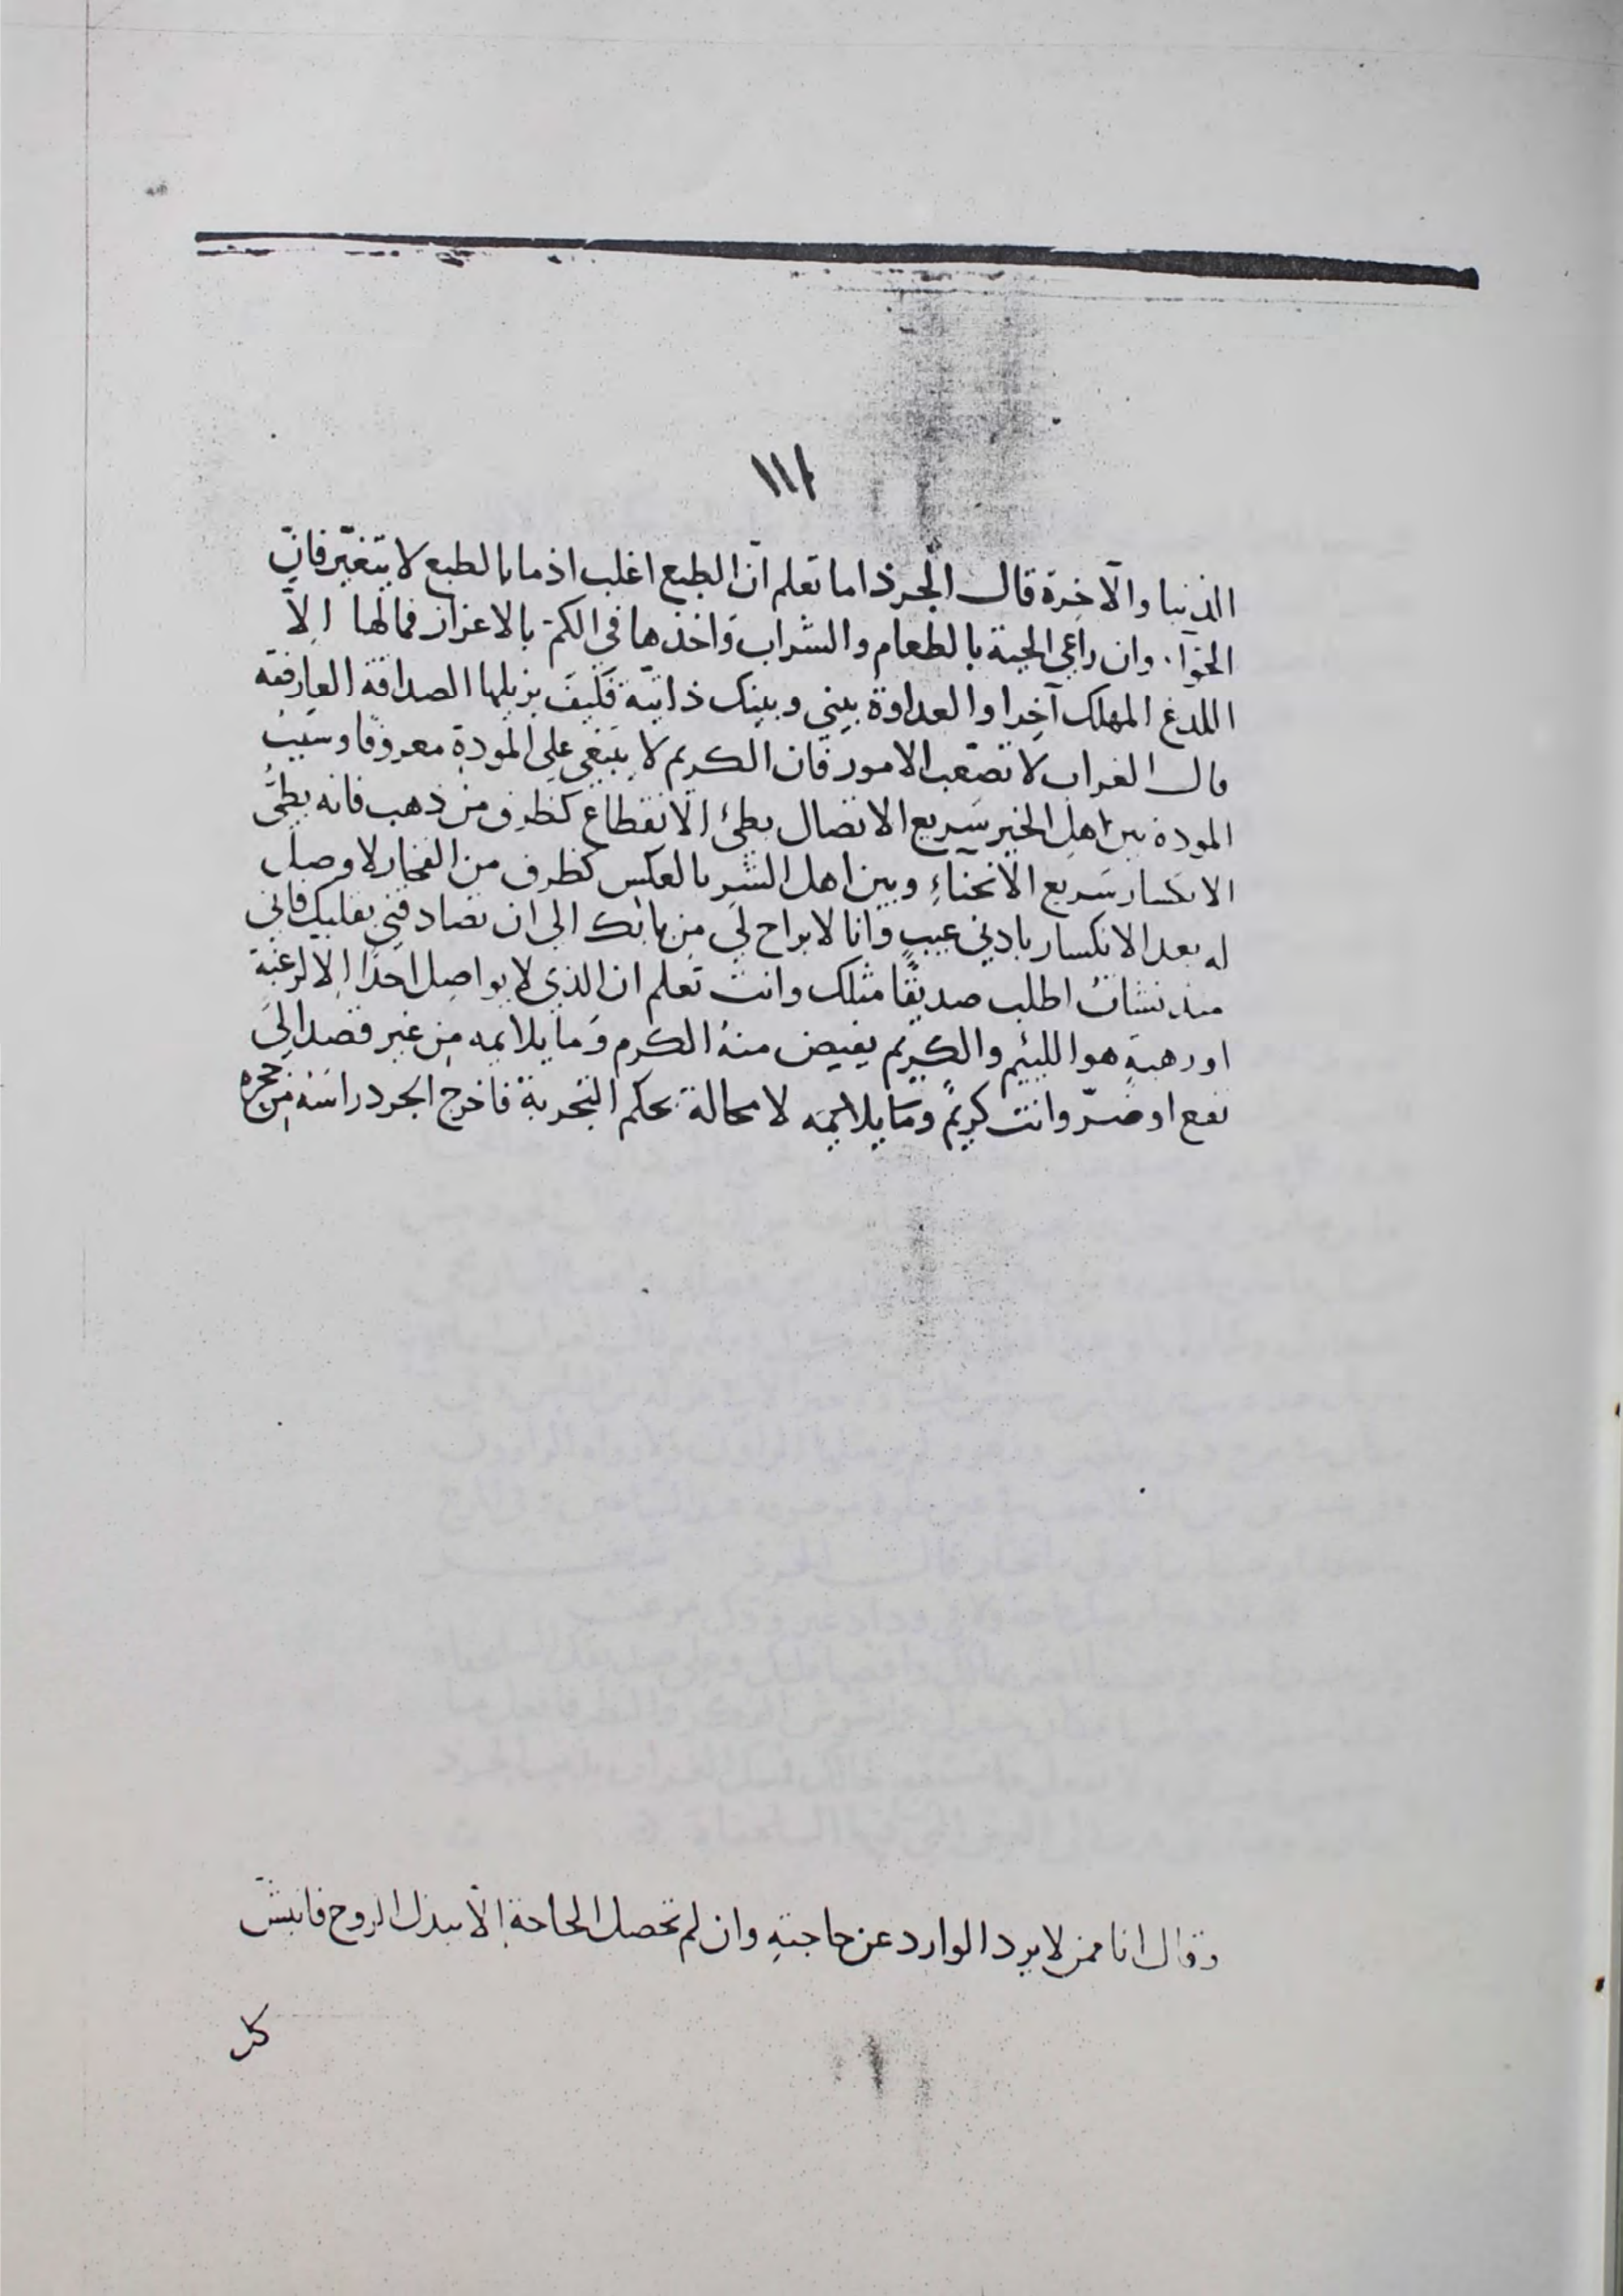 ١١٢
الدنيا والآخرة قال الجرذ اما تعلم انّ الطبع اغلب اذ ما بالطبع لا يتغيّر فانّ
الحوّآء وان راعى الحية بالطعام والشراب وَاخذها في الكمّ بالاعزاز فمالها الاّ
اللدغ المهلك آخرا والعداوة بيني وبينك ذاتيّة فكيفَ يزيلها الصداقة العارضة
قال الغراب لا تصَعّب الامور فان الكريم لا يبتغي على المودةِ معروفًا وسَببُ
المودة بين اهل الخير سَريع الاتصال بطئ الانقطاع كظرف من ذهب فانه بطئُ
الانكسار سَريع الانحنآءِ وبين اهل الشر بالعكس كظرف من الفخار لا وصل
له بعد الانكسار بادني عيبٍ وَانا لا براح لي من بابك الى ان تصادقني بقلبك فاني
منذ نشاتُ اطلب صديقًا مثلك وانت تعلم ان الذي لا يواصِل احدًا إلا لرغبة
او رهبةٍ هو اللئيم والكريم يفيض منهُ الكرم وَما يلايمه مِن غير قصد الى
نفع او ضرّ وانت كريمٌ ومَا يلايمه لا محالة بحكم التجربة فاخرج الجرد راسَه من جحره
وقال انا ممن لا يرد الوارد عن حاجتهِ وان لم تحصل الحاجة إلاّ ببذل الروح
كل